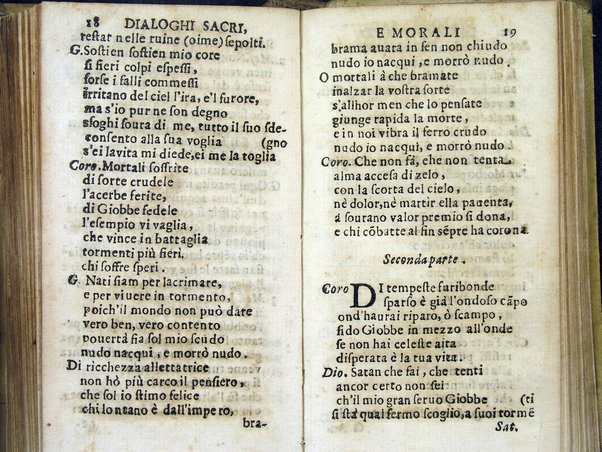 18 DIALOGHI SACRI,
restar nelle ruine (oime) sepolti.
G. Sostien sostien mio core
si fieri colpi espessi,
forse i falli commessi
irritano del ciel l'ira, e'l furore,
ma s'io pur ne son degno
sfoghi soura di me, tutto il suo sde-
consento alla sua voglia (gno
s'ei la vita mi diede, ei me la toglia
Coro. Mortali soffrite
di sorte crudele
l'acerbe ferite,
di Giobbe fedele
l'esempio vi vaglia,
che vince in battaglia
tormenti più fieri,
chi soffre speri.
G. Nati siam per lacrimare,
e per viuere in tormento,
poich'il mondo non può dare
vero ben, vero contento
pouertà fia sol mio scudo
nudo nacqui, e morrò nudo.
Di ricchezza allettatrice
non hò più carco il pensiero,
che sol io stimo felice
chi lontano è dall'impero,
bra-
E MORALI 19
brama auara in sen non chiudo
nudo io nacqui, e morrò nudo.
O mortali à che bramate
inalzar la vostra sorte
s'allhor men che lo pensate
giunge rapida la morte,
e in noi vibra il ferro crudo
nudo io nacqui, e morrò nudo.
Coro. Che non fà, che non tenta
alma accesa di zelo,
con la scorta del cielo,
nè dolor, nè martir ella pauenta,
a sourano valor premio si dona,
e chi cõbatte al fin sẽpre ha corona.
Seconda parte.
Coro DI tempeste furibonde
sparso è già l'ondoso cãpo
ond'haurai riparo, ò scampo,
fido Giobbe in mezzo all'onde
se non hai celeste aita
disperata è la tua vita.
Dio. Satan che fai, che tenti
ancor certo non sei
ch'il mio gran seruo Giobbe (ti
si stà qual fermo scoglio, a suoi tormẽ
Sat.